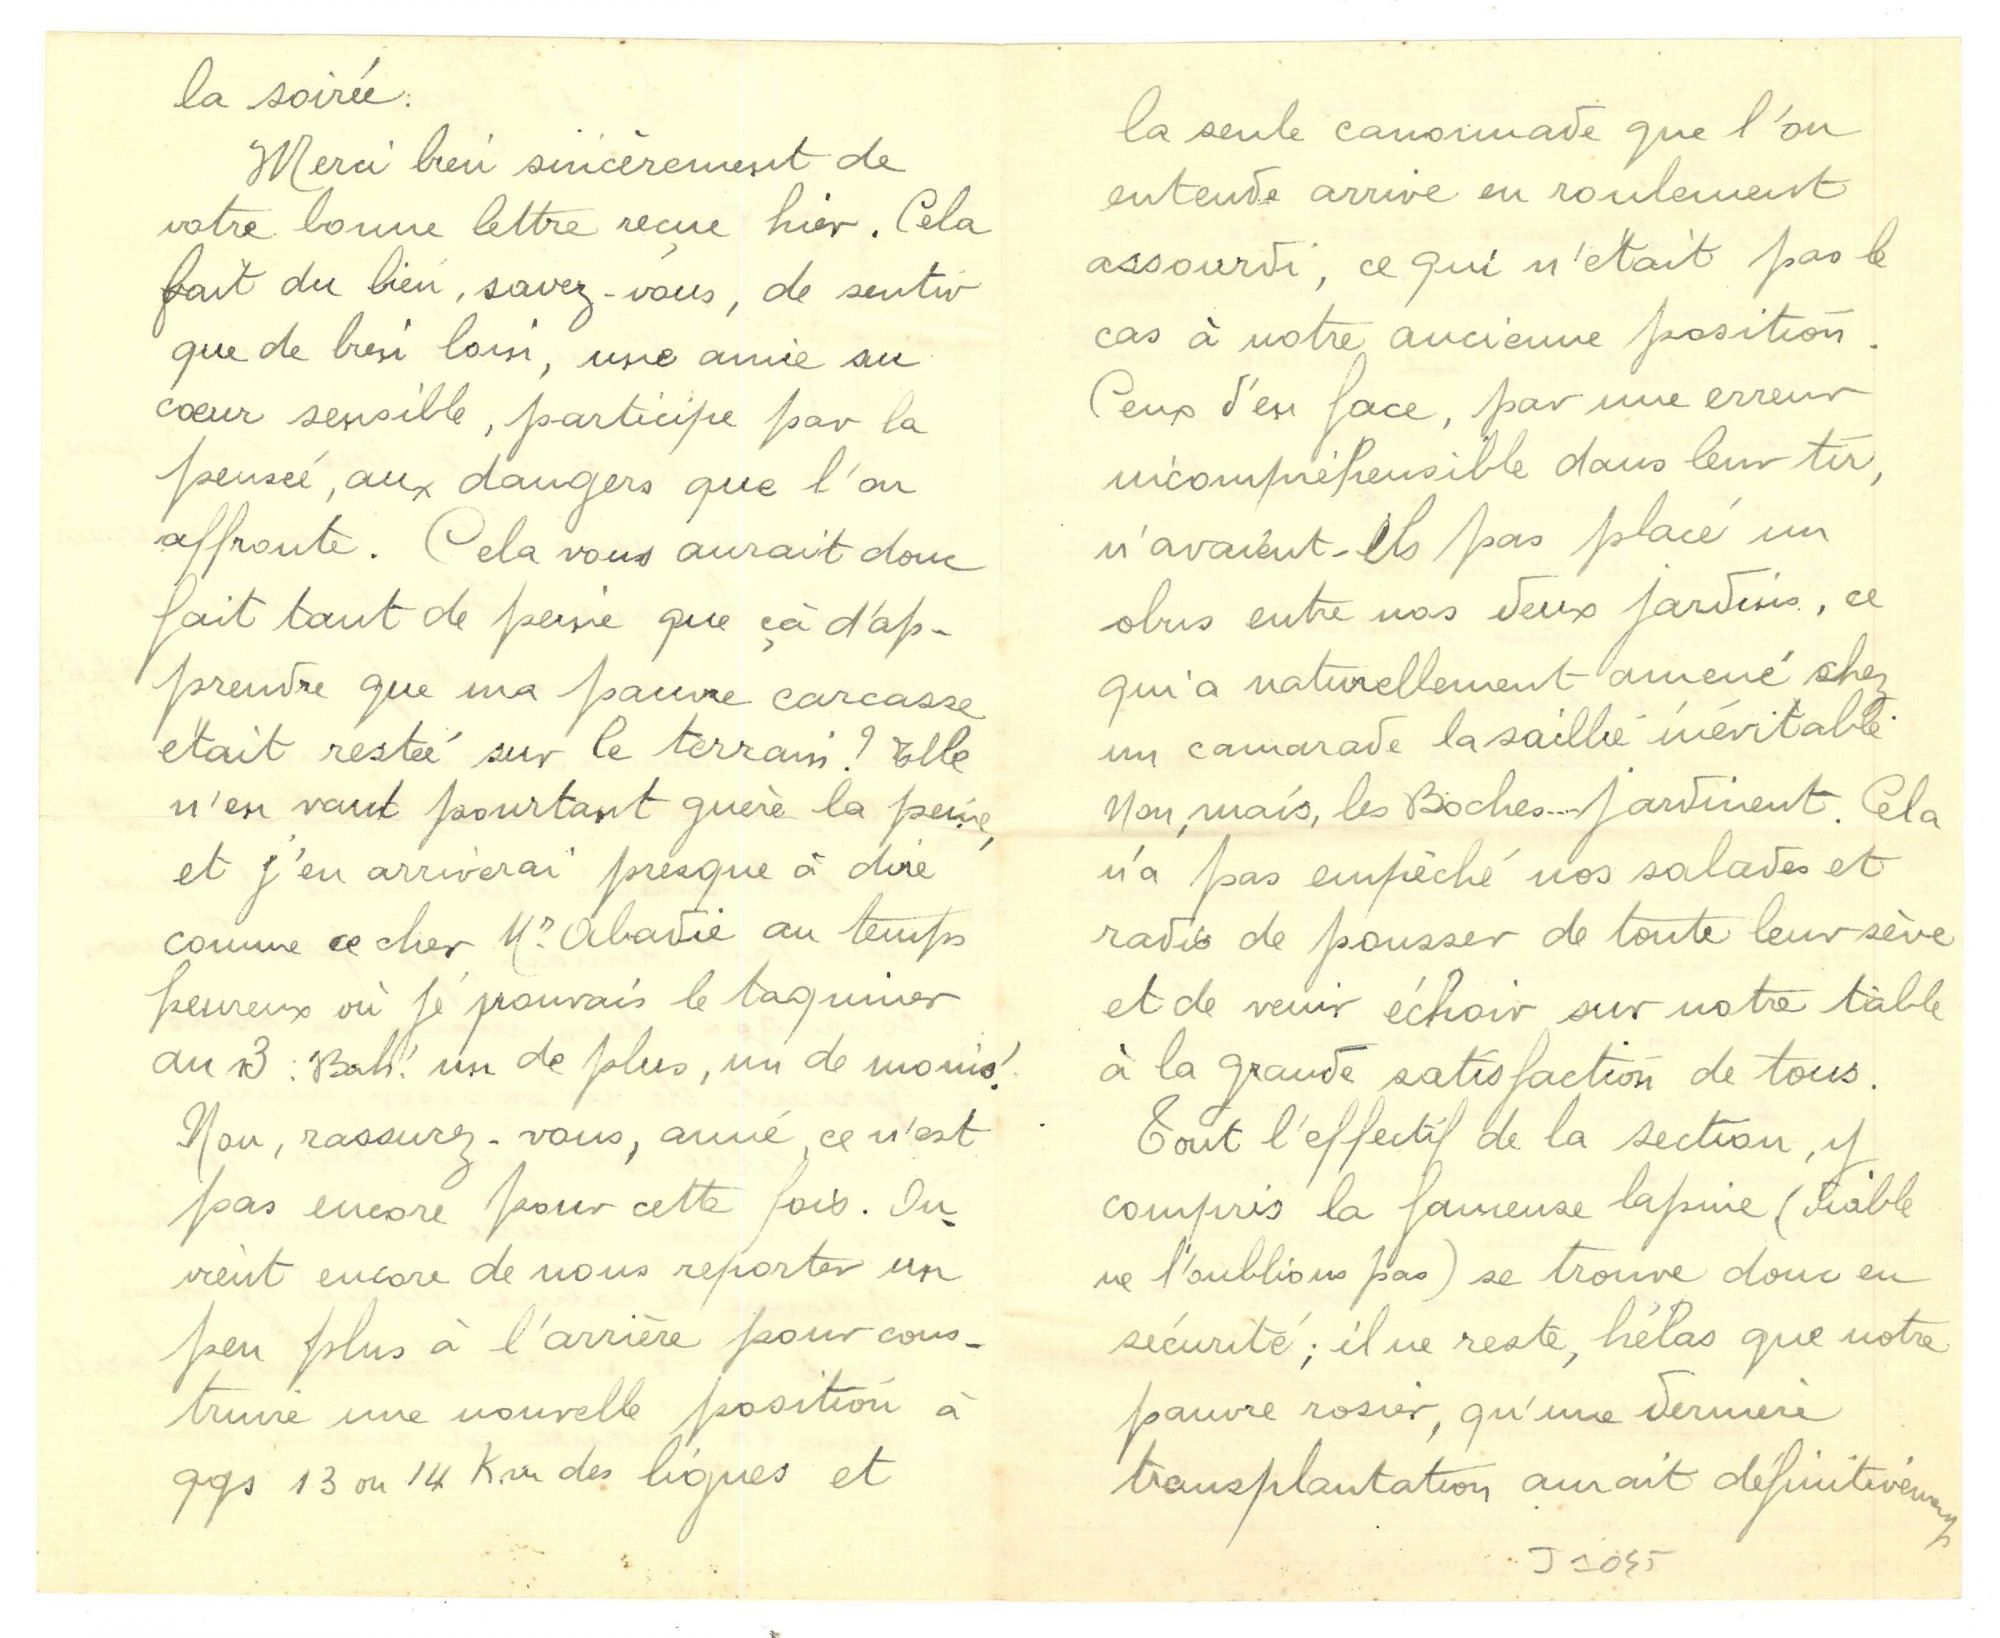 la soirée.
Merci bien sincèrement de
votre bonne lettre reçue hier. Cela
fait du bien, savez-vous, de sentir
que de bien loin, une amie au
cœur sensible, participe par la
pensée, aux dangers que l'on
affronte. Cela vous aurait donc
fait tant de peine que çà d'ap-
prendre que ma pauvre carcasse
était restée sur le terrain! Elle
n'en vaut pourtant guère la peine,
et j'en arriverai presque à dire
comme ce cher Mr Abadie au temps
heureux où je pouvais le taquiner
au 13 : Bah! un de plus, un de moins!
Non, rassurez-vous, amie, ce n'est
pas encore pour cette fois. On
vient encore de nous reporter un
peu plus à l'arrière pour cons-
truire une nouvelle position à
qqs 13 ou 14 Km des lignes et
la seule canonnade que l'on
entende arrive en roulement
assourdi, ce qui n'était pas le
cas à notre ancienne position.
Ceux d'en face, par une erreur
incompréhensible dans leur tir,
n'avaient-ils pas placé un
obus entre nos deux jardins, ce
qui a naturellement amené chez
un camarade la saillie inévitable.
Non, mais, les Boches... jardinent. Cela
n'a pas empêché nos salades et
radis de pousser de toute leur sève
et de venir échoir sur notre table
à la grande satisfaction de tous.
Tout l'effectif de la section, y
compris la fameuse lapine (diable
ne l'oublions pas) se trouve donc en
sécurité; il ne reste, hélas que notre
pauvre rosier, qu'une dernière
transplantation aurait définitivement
J 1045